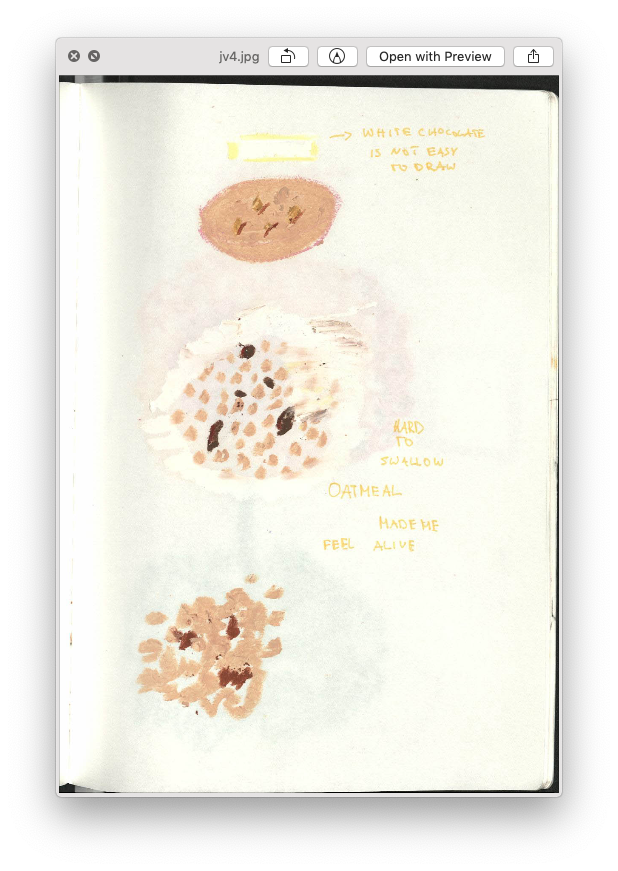 jv4.jpg
Open with Preview
WHITE CHOCOLATE
IS NOT EASY
TO DRAW
HARD
TO
SWALLOW
OATMEAL
MADE ME
FEEL ALIVE